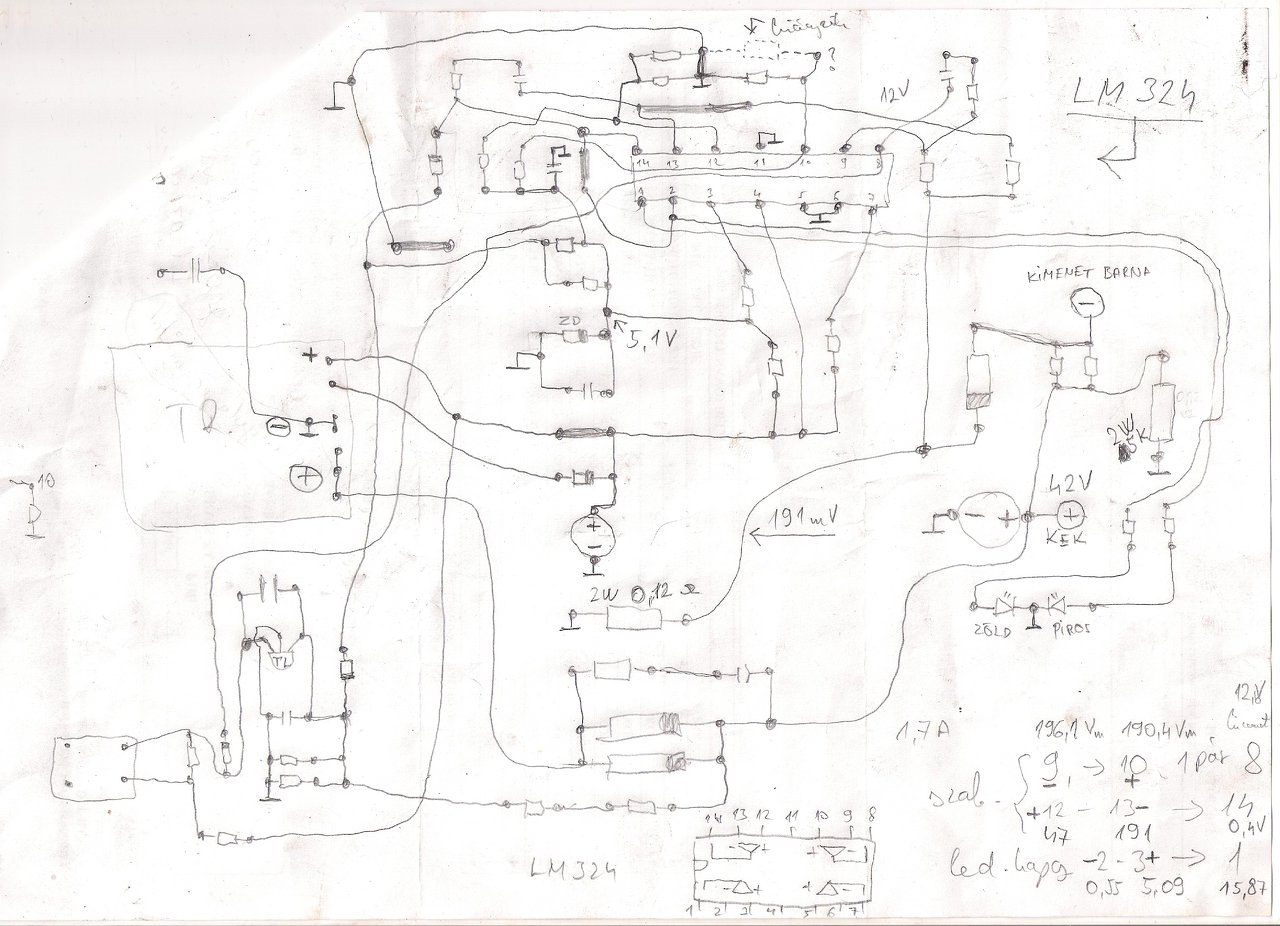 ?
12V
LM 324
14 13 12 11 10 9 8
1 2 3 4 5 6 7
KIMENET BARNA
−
ZD
5,1V
+
TR
−
+
10
2W
5K
42V
− + +
KÉK
191mV
+
−
2W 0,12 Ω
ZÖLD PIROS
TL
12,8V
1,7A
196,1Vm 190,4Vm
9, → 10 1 pár 8
− +
szab.
+12 - 13- → 14
0,4V
47 191
led. kapcs -2 - 3+ → 1
0,55 5,09 15,87
LM324
14 13 12 11 10 9 8
− + + −
− + + −
1 2 3 4 5 6 7